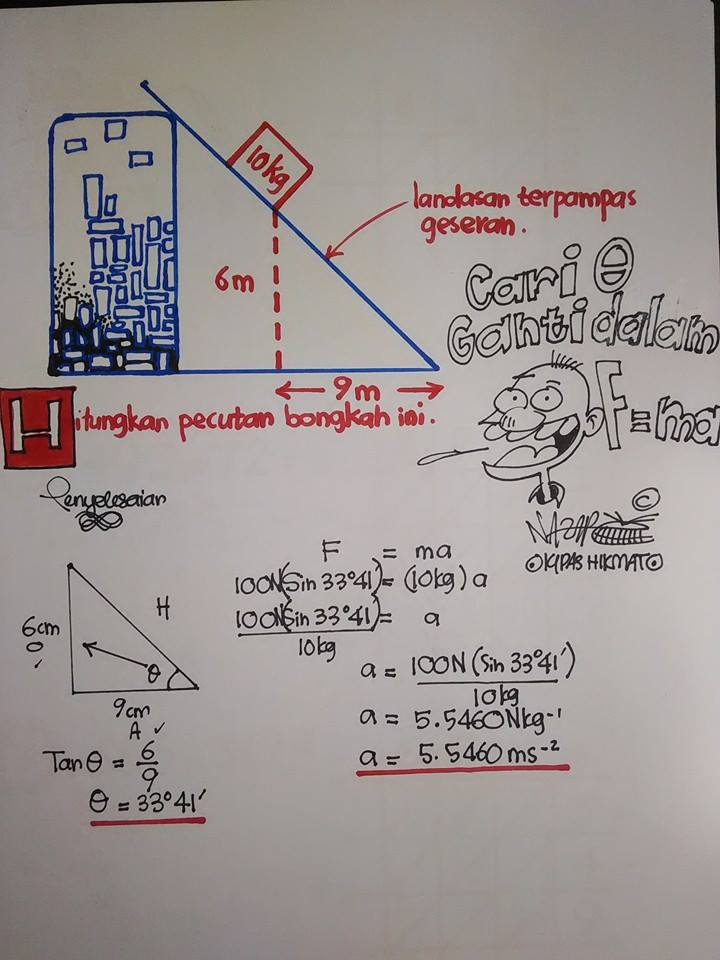 10kg
landasan terpampas
geseran.
6m
9m
Cari θ
Ganti dalam
F=ma
Hitungkan pecutan bongkah ini.
Penyelesaian
©
KIPAS HIKMAT
6cm
O
✓
H
θ
9cm
A ✓
Tan θ = 6/9
θ = 33°41′
F = ma
100N(Sin 33°41′) = (10kg) a
100N(Sin 33°41′)/10kg = a
a = 100N (Sin 33°41′)/10kg
a = 5.5460 Nkg⁻¹
a = 5.5460 ms⁻²